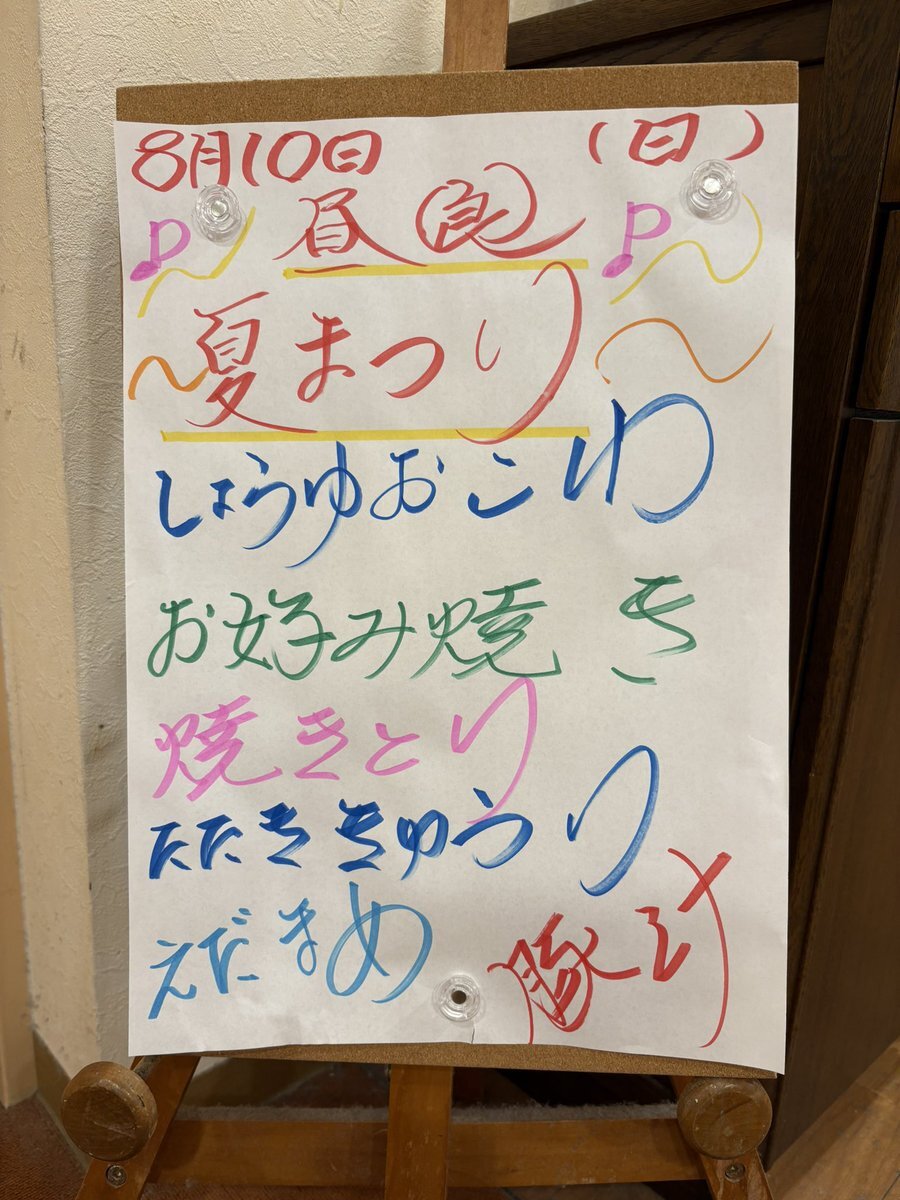 8月10日 (日)
昼食
夏まつり
しょうゆおこわ
お好み焼き
焼きとり
たたききゅうり
えだまめ
豚汁